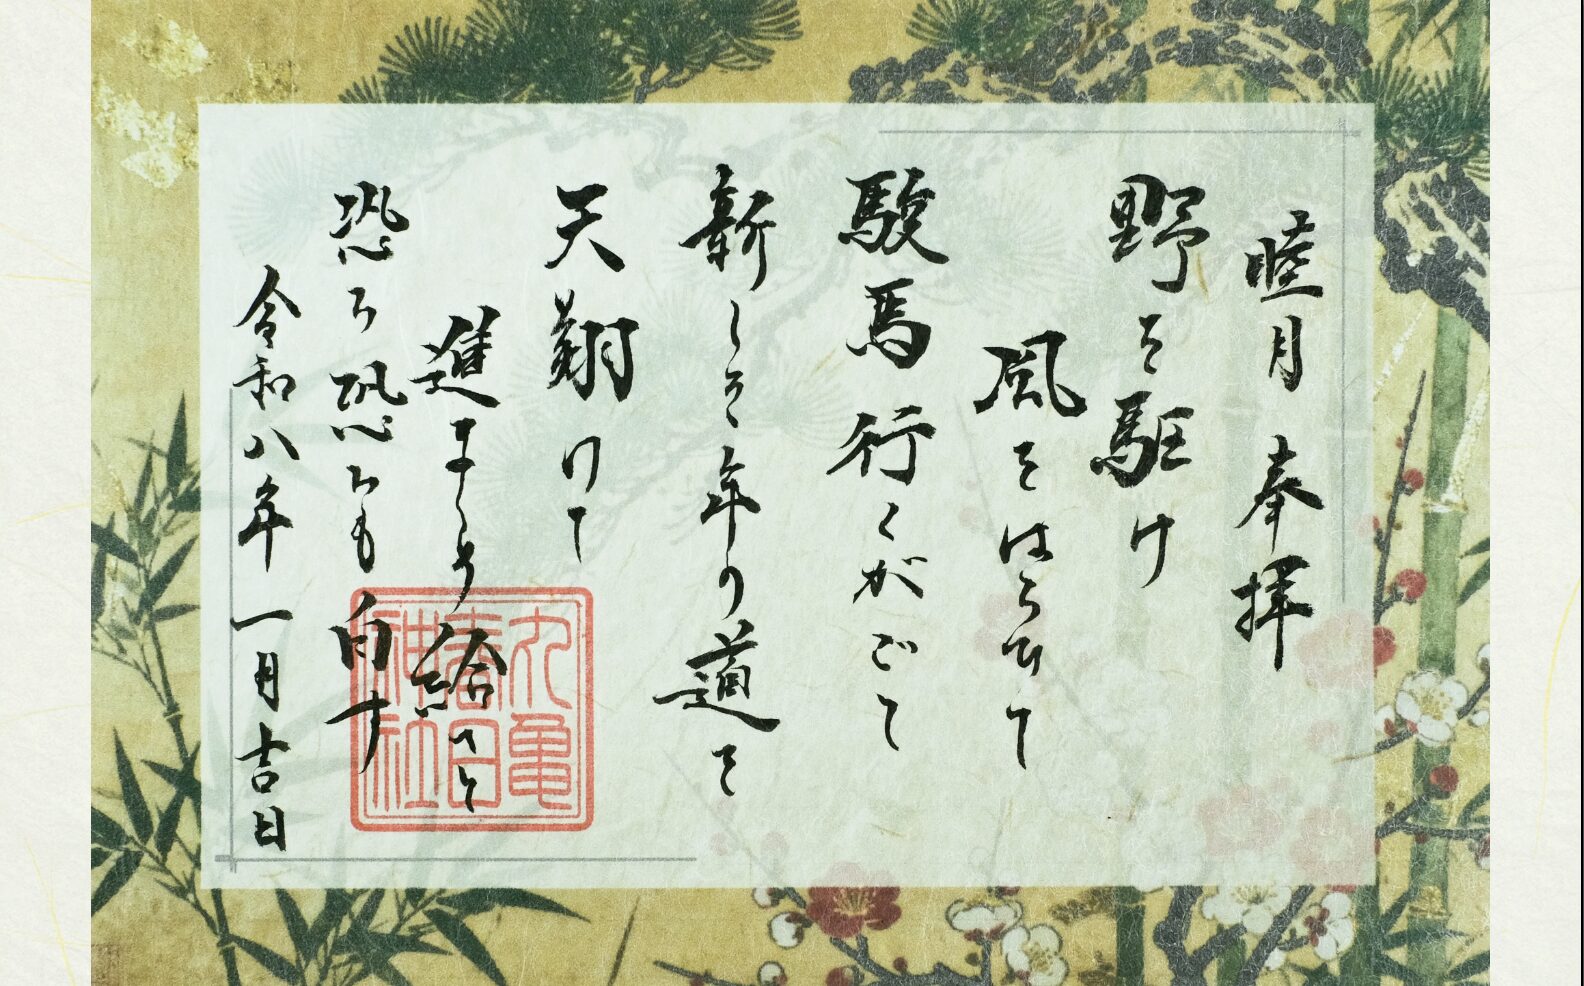 睦月 奉拝
野を駆け
風をはらひて
駿馬行くがごと
新しき年の道を
天翔けて
進ましめ給へと
恐み恐みも白す
令和八年一月吉日
丸亀
春日
神社